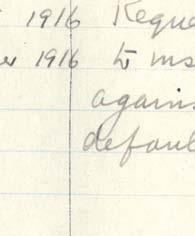 1916 Reque
1916 to ins
agains
defaul